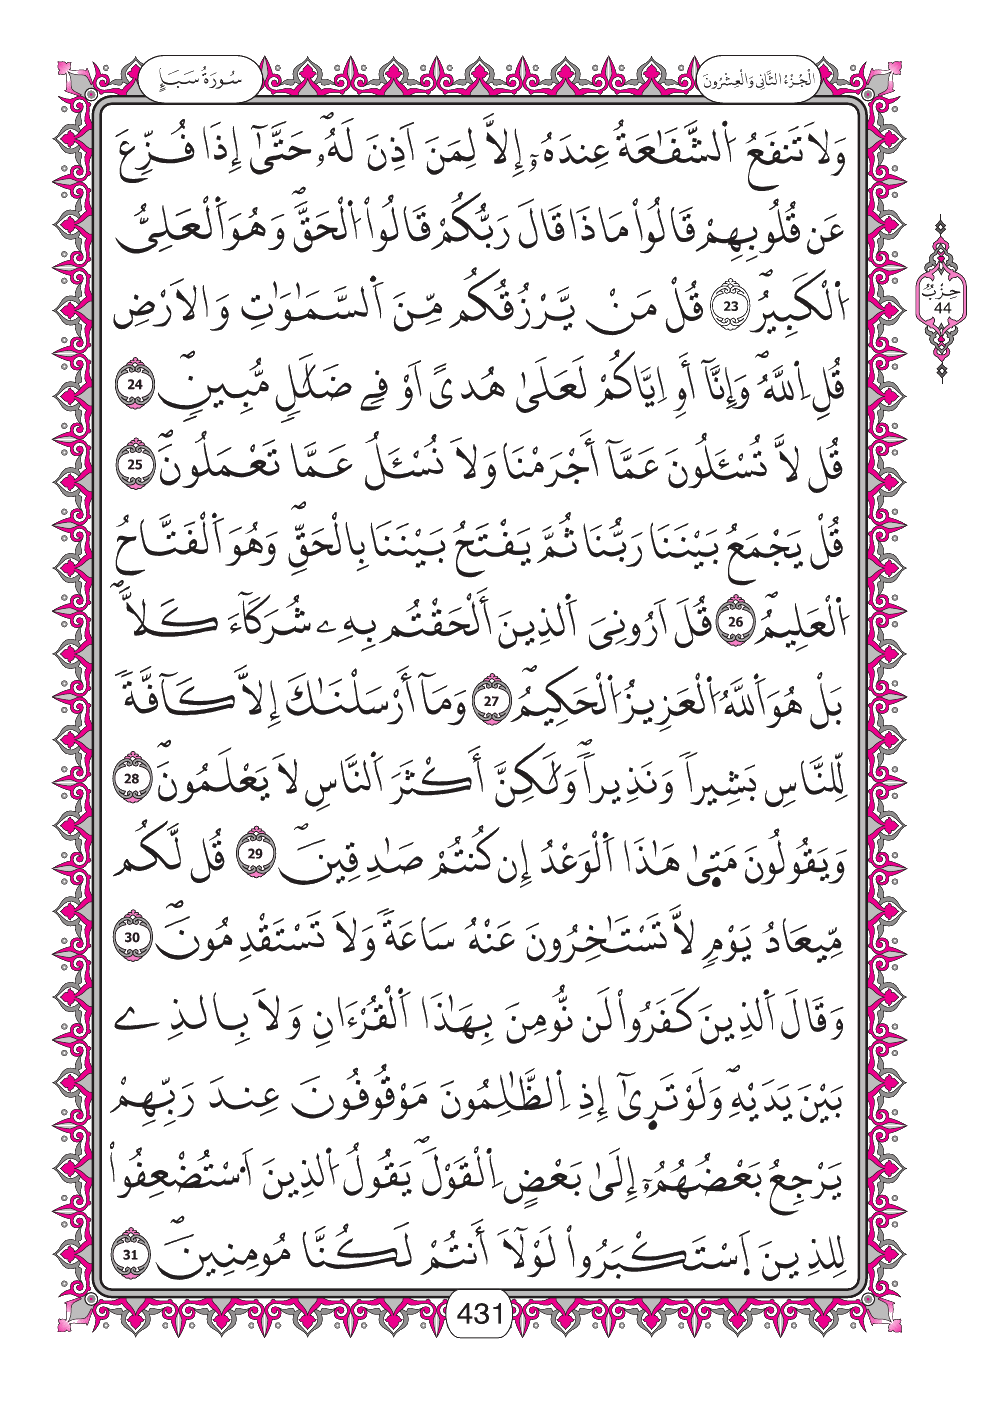 سُورَةُ سَبَإٍ
الْجُزْءُ الثَّانِي وَالْعِشْرُونَ
وَلَا تَنفَعُ اُ۬لشَّفَٰعَةُ عِندَهُۥٓ إِلَّا لِمَنَ اَذِنَ لَهُۥۖ حَتَّىٰٓ إِذَا فُزِّعَ
عَن قُلُوبِهِمْ قَالُواْ مَاذَا قَالَ رَبُّكُمْ قَالُواْ اُ۬لْحَقَّۖ وَهُوَ اَ۬لْعَلِيُّ
اُ۬لْكَبِيرُۖ 23 قُلْ مَنْ يَّرْزُقُكُم مِّنَ اَ۬لسَّمَٰوَٰتِ وَالَارْضِ
قُلِ اِ۬للَّهُۖ وَإِنَّآ أَوِ اِيَّاكُمْ لَعَلَىٰ هُدىً اَوْ فِے ضَلَٰلٖ مُّبِينٖۖ 24
قُل لَّا تُسْـَٔلُونَ عَمَّآ أَجْرَمْنَا وَلَا نُسْـَٔلُ عَمَّا تَعْمَلُونَۖ 25
قُلْ يَجْمَعُ بَيْنَنَا رَبُّنَا ثُمَّ يَفْتَحُ بَيْنَنَا بِالْحَقِّۖ وَهُوَ اَ۬لْفَتَّاحُ
اُ۬لْعَلِيمُۖ 26 قُلَ اَرُونِيَ اَ۬لذِينَ أَلْحَقْتُم بِهِۦ شُرَكَآءَ كَلَّاۖ
بَلْ هُوَ اَ۬للَّهُ اُ۬لْعَزِيزُ اُ۬لْحَكِيمُۖ 27 وَمَآ أَرْسَلْنَٰكَ إِلَّا كَآفَّةٗ
لِّلنَّاسِ بَشِيراٗ وَنَذِيراٗۖ وَلَٰكِنَّ أَكْثَرَ اَ۬لنَّاسِ لَا يَعْلَمُونَۖ 28
وَيَقُولُونَ مَتۭيٰ هَٰذَا اَ۬لْوَعْدُ إِن كُنتُمْ صَٰدِقِينَۖ 29 قُل لَّكُم
مِّيعَادُ يَوْمٖ لَّا تَسْتَٰخِرُونَ عَنْهُ سَاعَةٗ وَلَا تَسْتَقْدِمُونَۖ 30
وَقَالَ اَ۬لذِينَ كَفَرُواْ لَن نُّومِنَ بِهَٰذَا اَ۬لْقُرْءَانِ وَلَا بِالذِے
بَيْنَ يَدَيْهِۖ وَلَوْ تَرۭيٰٓ إِذِ اِ۬لظَّٰلِمُونَ مَوْقُوفُونَ عِندَ رَبِّهِمْ
يَرْجِعُ بَعْضُهُمُۥٓ إِلَىٰ بَعْضٍ اِ۬لْقَوْلَۖ يَقُولُ اُ۬لذِينَ اَ۟سْتُضْعِفُواْ
لِلذِينَ اَ۪سْتَكْبَرُواْ لَوْلَآ أَنتُمْ لَكُنَّا مُومِنِينَۖ 31
حِزْبٌ
44
431